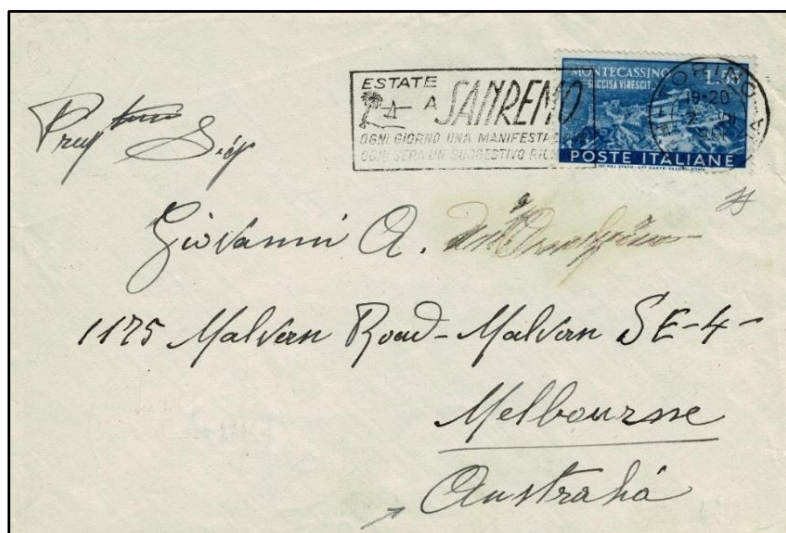 ESTATE
A SANREMO
OGNI GIORNO UNA
OGNI SERA UN SUGGESTIVO
MONTECASSINO L.55
SUCCISA VIRESCIT
POSTE ITALIANE
TORINO
19-20
Giovanni A.
1175 Malvern Road-Malvern SE-4-
Melbourne
Australia